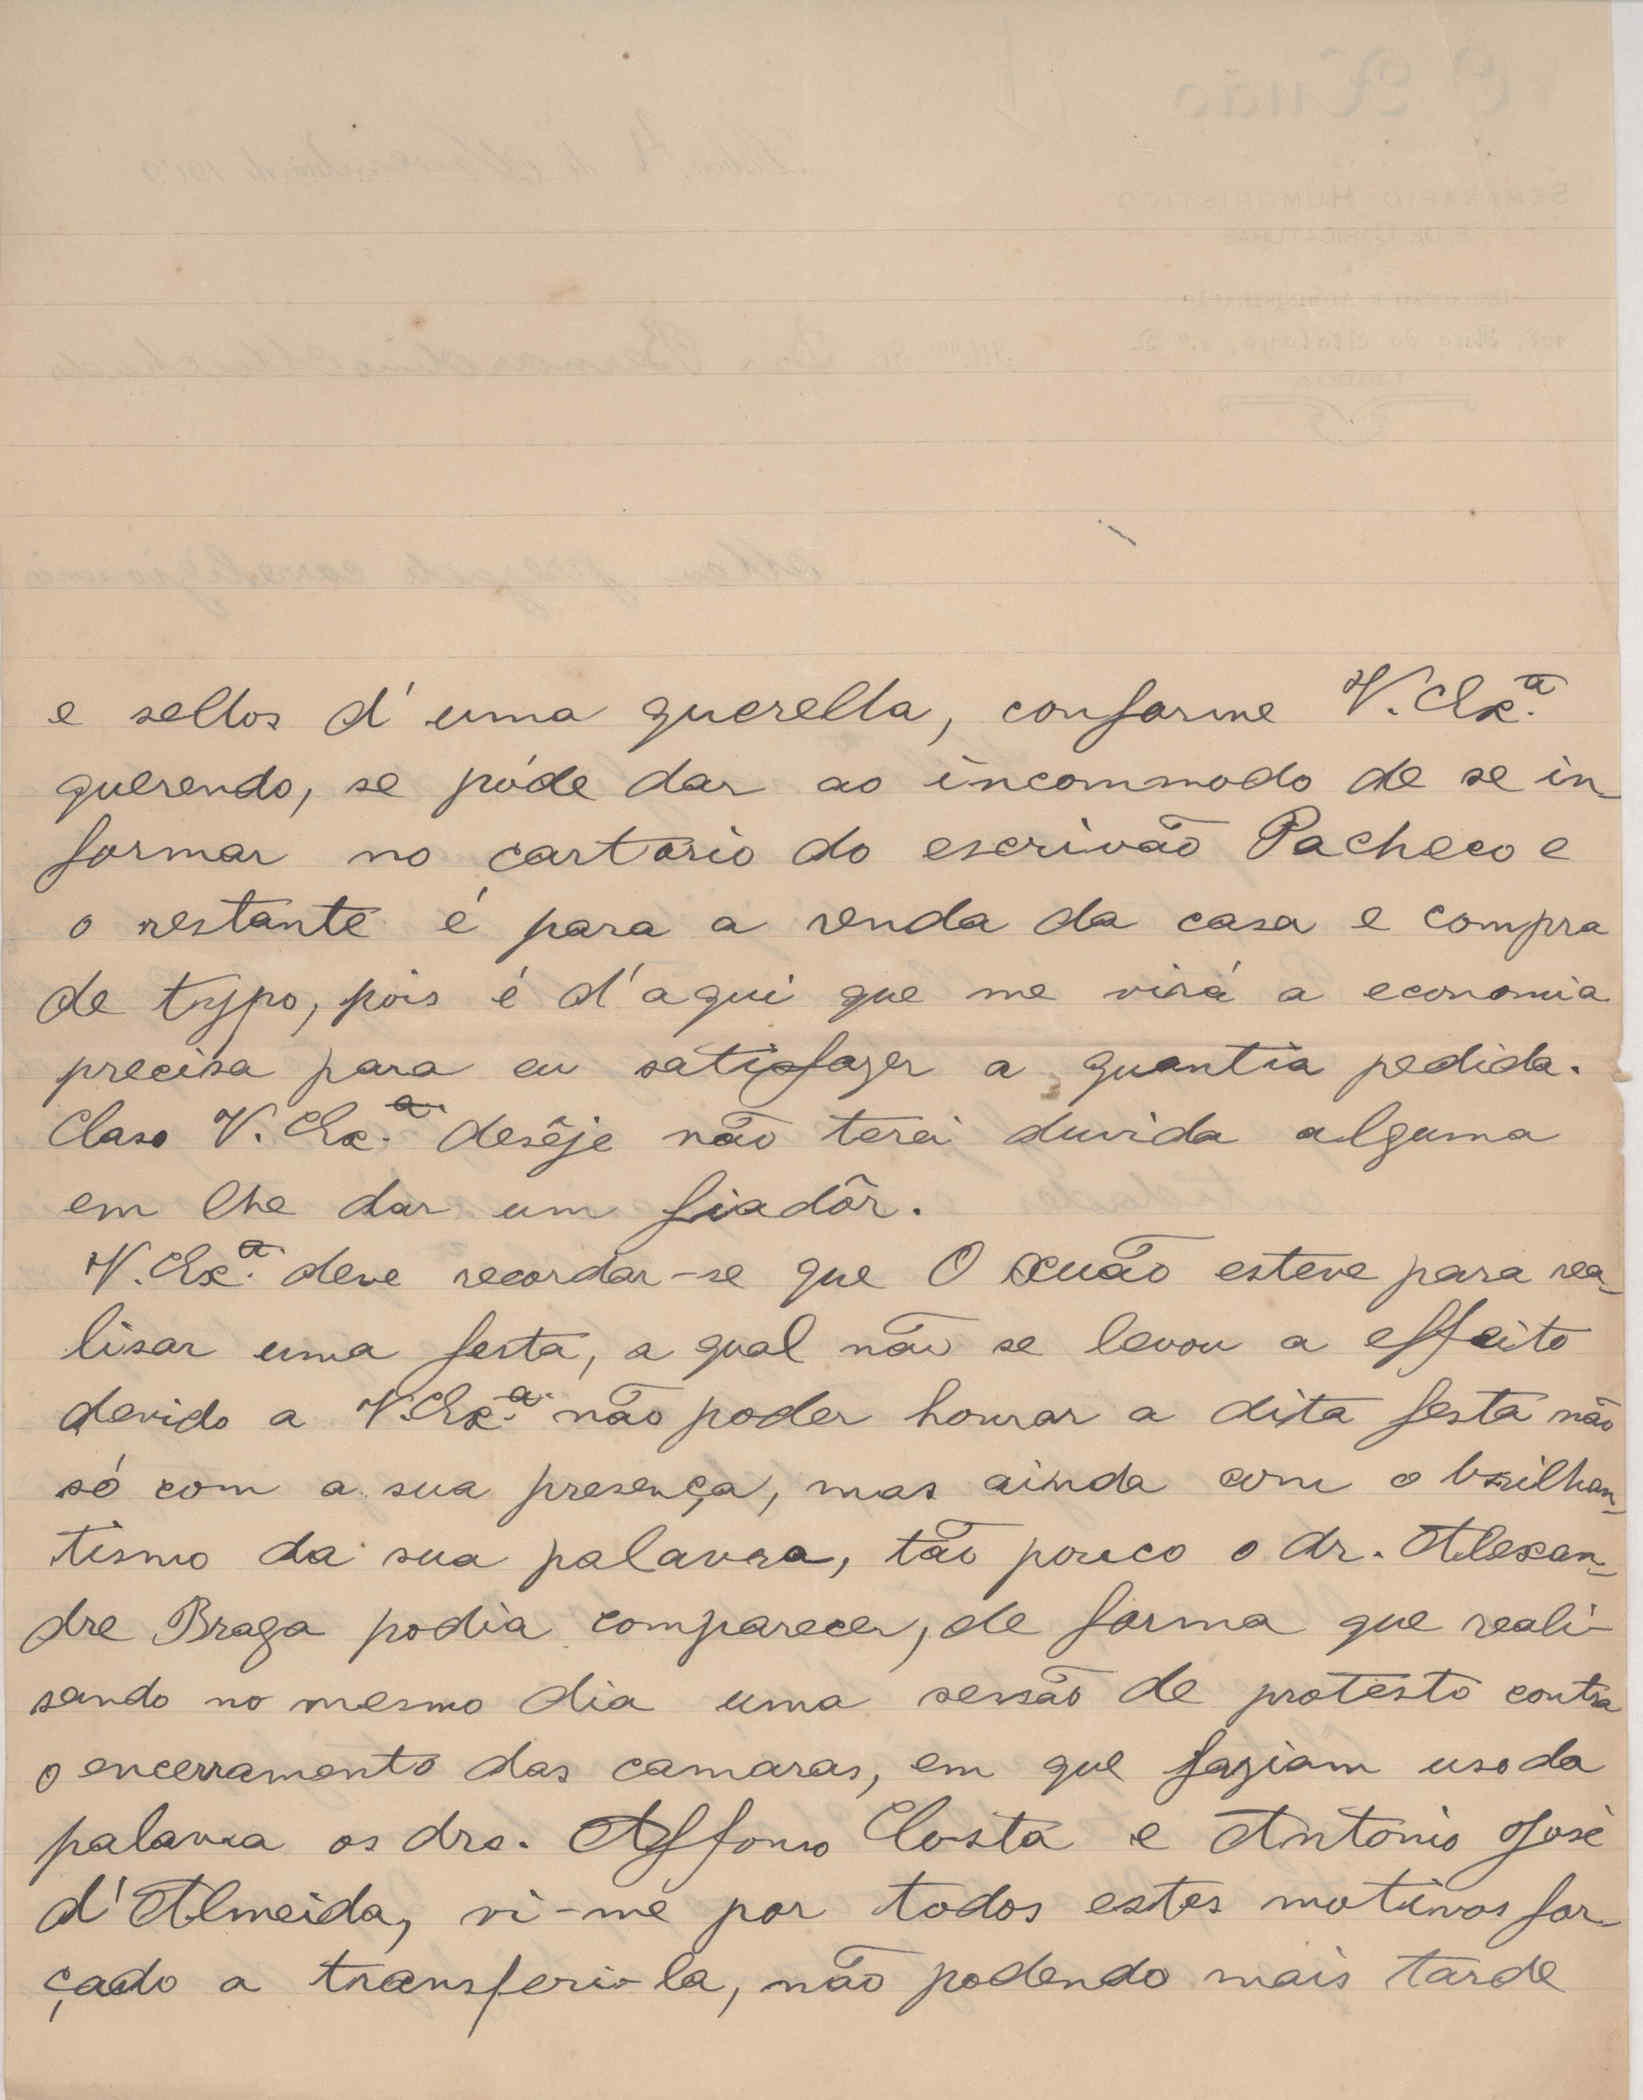 e sellos d'uma querella, conforme V. Ex.ª
querendo, se póde dar ao incommodo de se in-
formar no cartorio do escrivão Pacheco e
o restante é para a renda da casa e compra
de typo, pois é d'aqui que me virá a economia
precisa para eu satisfazer a quantia pedida.
Caso V. Ex.ª desêje não terei duvida alguma
em lhe dar um fiadôr.
V. Ex.ª deve recordar-se que O Xuão esteve para rea-
lisar uma festa, a qual não se levou a effeito
devido a V. Ex.ª não poder honrar a dita festa não
só com a sua presença, mas ainda com o brilhan-
tismo da sua palavra, tão pouco o dr. Alexan-
dre Braga podia comparecer, de forma que reali-
sando no mesmo dia uma sensão de protesto contra
o encerramento das camaras, em que faziam uso da
palavra os drs. Affonso Costa e Antonio José
d'Almeida, vi-me por todos estes motivos for-
çado a transferi-la, não podendo mais tarde